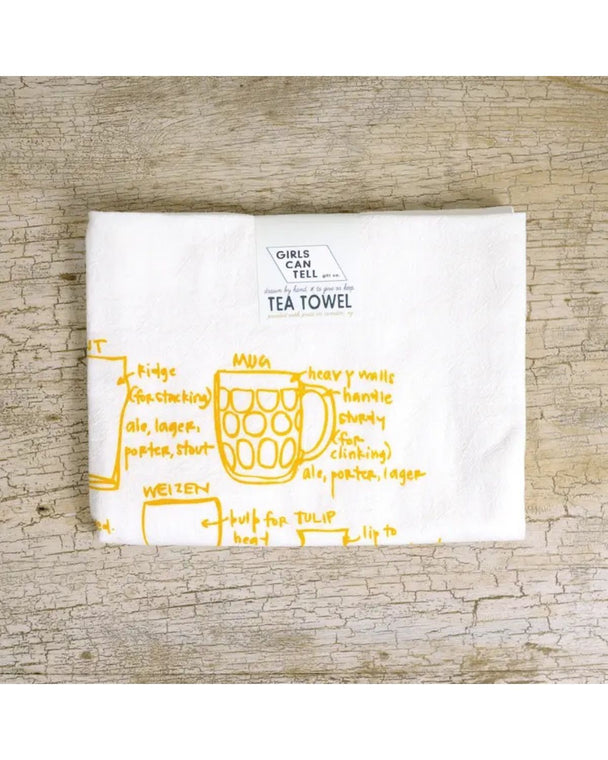 GIRLS
CAN
TELL
gift co.
drawn by hand & to give or keep
TEA TOWEL
printed with pride in camden, nj
NT
Ridge
(for stacking)
ale, lager,
porter, stout
MUG
heavy walls
handle
sturdy
(for
clinking)
ale, porter, lager
WEIZEN
bulb for
head
TULIP
lip to
ed.